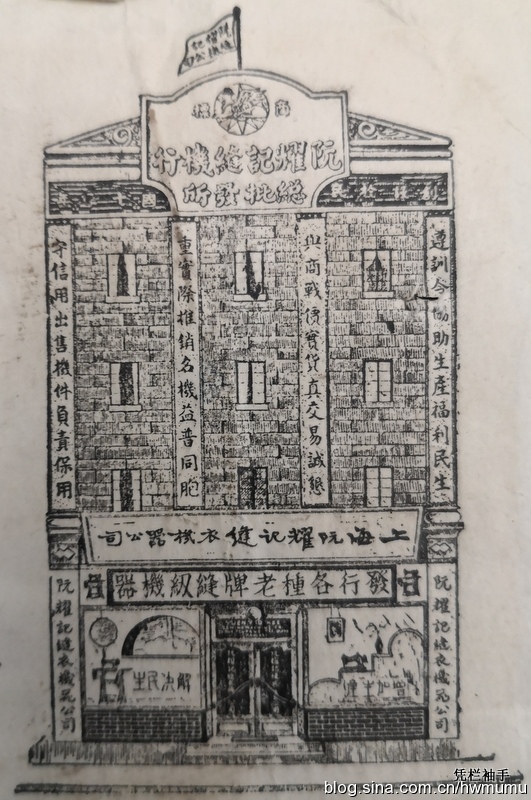 商標
阮耀記縫機行
總批發所
遵訓令協助生產福利民生
與商戰價實貨真交易誠懇
重實際推銷名機益普同胞
守信用出售機件負責保用
上海阮耀記縫衣機器公司
發行各種老牌縫級機器
阮耀記縫衣機公司
增加生產
解決民生
阮耀記縫衣機公司
凭栏袖手
blog.sina.com.cn/hwmumu